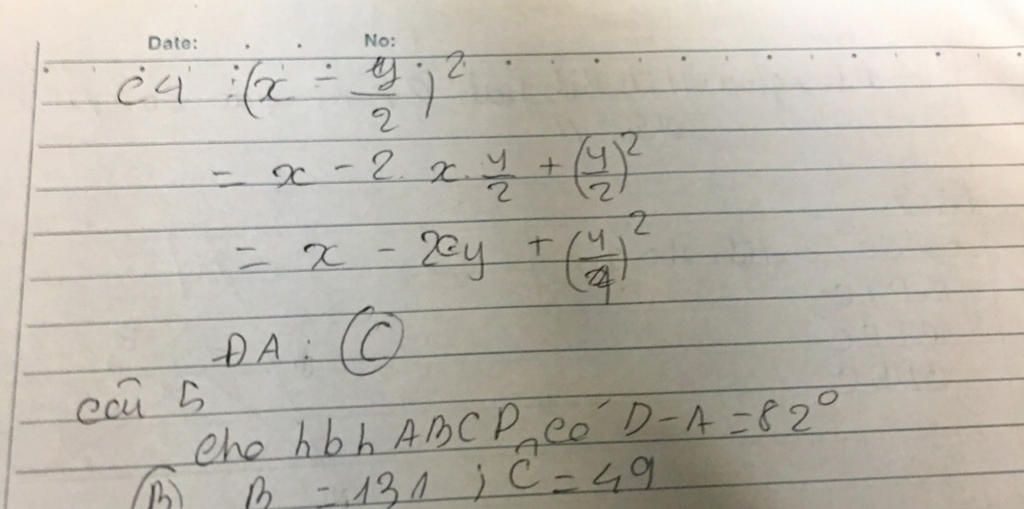 Date: No:
C4 : (x - y/2)²
= x - 2. x. y/2 + (y/2)²
= x - xy + (y/4)²
ĐA : C
câu 5
cho hbh ABCD có D - A = 82°
B B = 131 ; Ĉ = 49